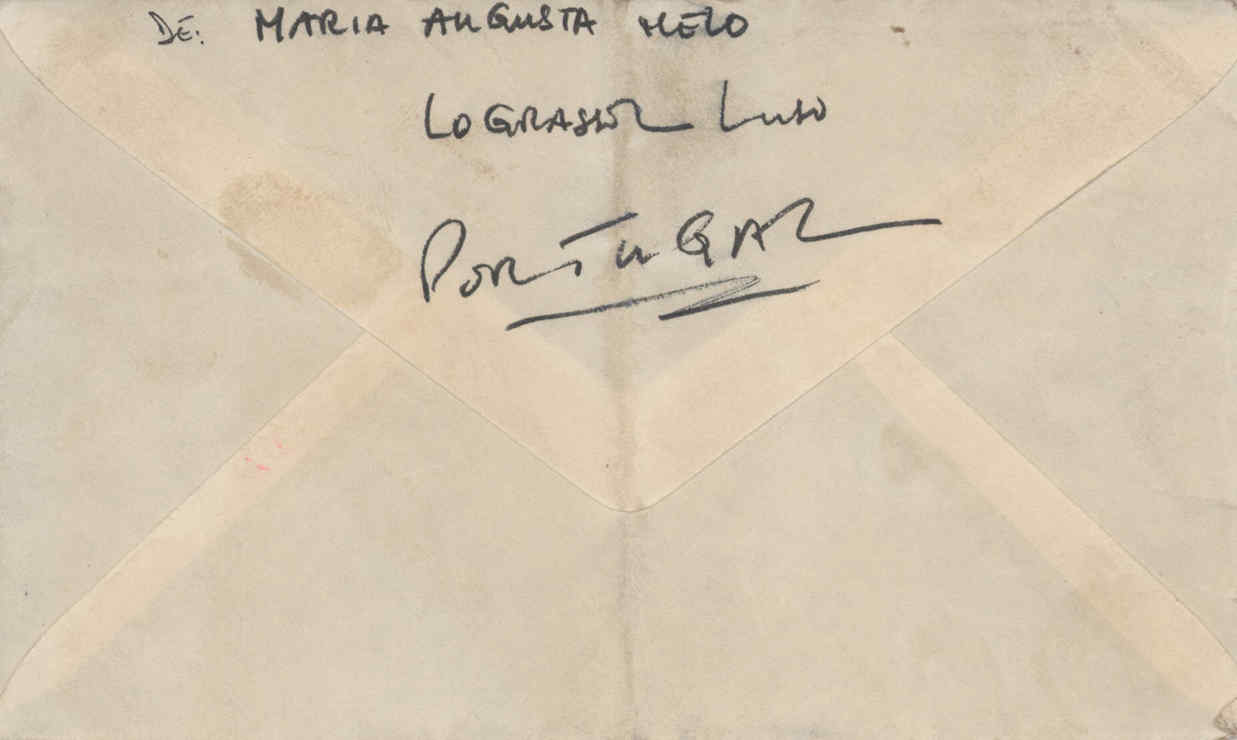 DE: MARIA AUGUSTA MELO
LOGRASSOL LUSO
PORTUGAL